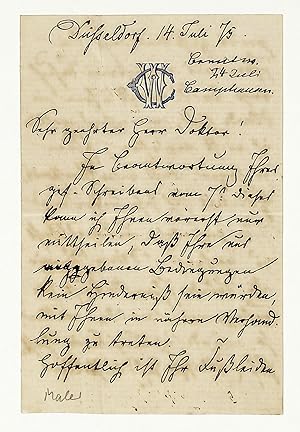 Düsseldorf. 14. Juli 75.
24 Juli
Camphausen.
Sehr geehrter Herr Doktor!
In Beantwortung Ihres
gef. Schreibens vom 7t. dieses
kann ich Ihnen vorerst nur
mittheilen, daß Ihre uns
gegebenen Bedingungen
kein Hinderniß sein würden,
mit Ihnen in nähere Verhand-
lung zu treten.
Hoffentlich ist Ihr Fußleiden
Maler